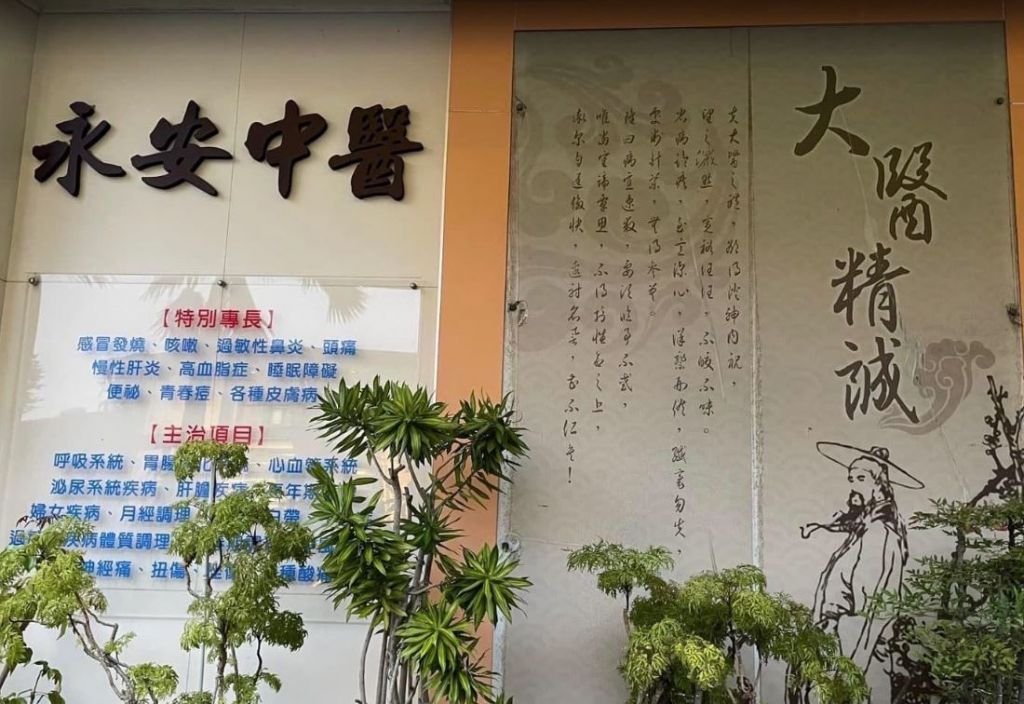 永安中醫
【特別專長】
感冒發燒、咳嗽、過敏性鼻炎、頭痛
慢性肝炎、高血脂症、睡眠障礙
便祕、青春痘、各種皮膚病
【主治項目】
呼吸系統、胃腸、心血管系統
泌尿系統疾病、肝膽疾病、年期
婦女疾病、月經調理 白帶
疾病體質調理
神經痛、扭傷、種酸
大醫精誠
夫大醫之體，欲得澄神內視，
望之儼然，寬裕汪汪，不皎不昧。
省病診疾，至意深心，詳察形候，纖毫勿失，
處判針藥，無得參差。
雖曰病宜速救，要須臨事不惑，
唯當審諦覃思，不得於性命之上，
率爾自逞俊快，邀射名譽，甚不仁矣！